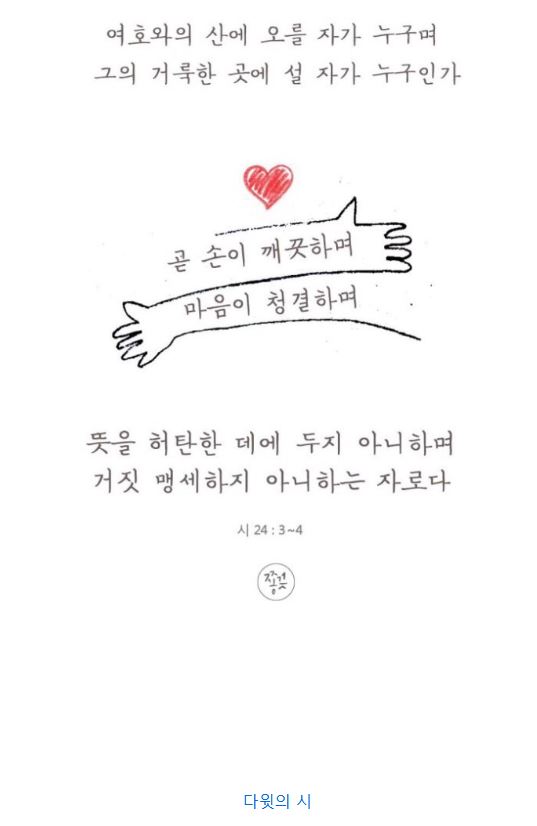 여호와의 산에 오를 자가 누구며
그의 거룩한 곳에 설 자가 누구인가
곧 손이 깨끗하며
마음이 청결하며
뜻을 허탄한 데에 두지 아니하며
거짓 맹세하지 아니하는 자로다
시 24 : 3~4
다윗의 시